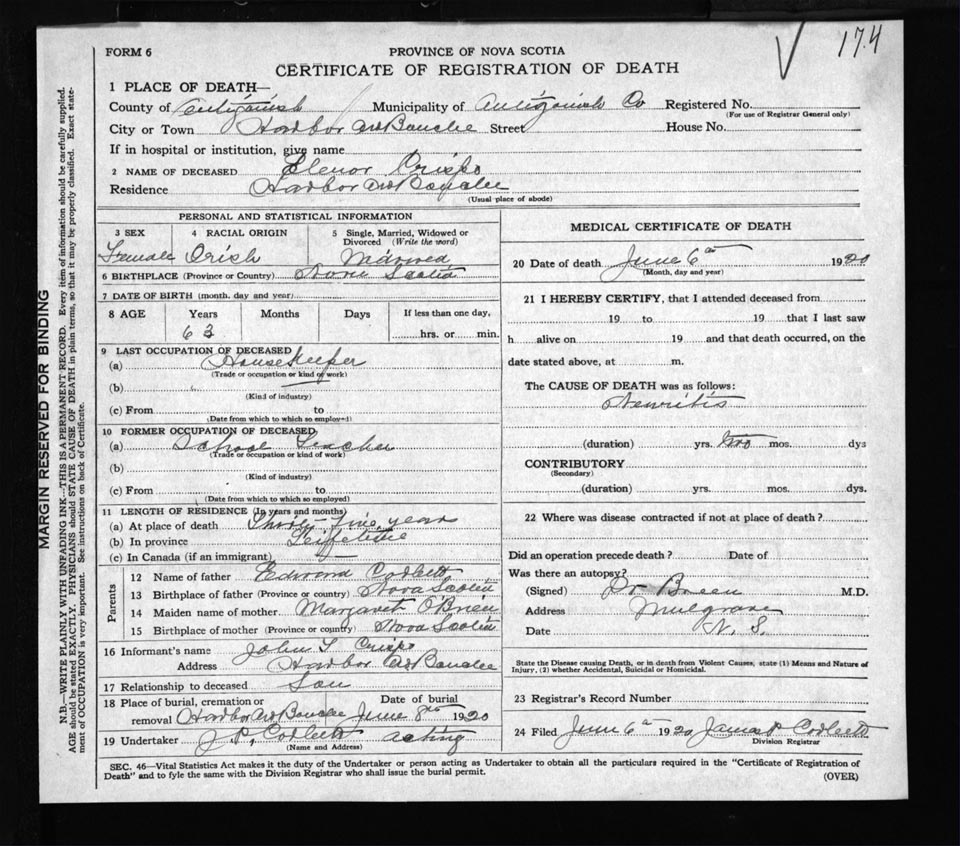 174
FORM 6
PROVINCE OF NOVA SCOTIA
CERTIFICATE OF REGISTRATION OF DEATH
1 PLACE OF DEATH—
County of Antigonish Municipality of Antigonish Co Registered No.
(For use of Registrar General only)
City or Town Harbor Au Bouche Street House No.
If in hospital or institution, give name
2 NAME OF DECEASED Elenor Crispo
Residence Harbor Au Bouche
(Usual place of abode)
PERSONAL AND STATISTICAL INFORMATION
3 SEX 4 RACIAL ORIGIN 5 Single, Married, Widowed or
Divorced (Write the word)
Female Irish Married
6 BIRTHPLACE (Province or Country) Nova Scotia
7 DATE OF BIRTH (month, day and year)
8 AGE Years Months Days If less than one day,
63 hrs. or min.
9 LAST OCCUPATION OF DECEASED
(a) Housekeeper
(Trade or occupation or kind of work)
(b)
(Kind of industry)
(c) From to
(Date from which to which so employed)
10 FORMER OCCUPATION OF DECEASED
(a) School Teacher
(Trade or occupation or kind of work)
(b)
(Kind of industry)
(c) From to
(Date from which to which so employed)
11 LENGTH OF RESIDENCE (In years and months)
(a) At place of death Thirty-five years
(b) In province Lifetime
(c) In Canada (if an immigrant)
Parents
12 Name of father Edward Corbett
13 Birthplace of father (Province or country) Nova Scotia
14 Maiden name of mother Margaret O'Brien
15 Birthplace of mother (Province or country) Nova Scotia
16 Informant's name John Crispo
Address Harbor Au Bouche
17 Relationship to deceased Son
18 Place of burial, cremation or Date of burial
removal Harbor Au Bouche June 8th 1920
19 Undertaker J. P. Corbett acting
(Name and Address)
MEDICAL CERTIFICATE OF DEATH
20 Date of death June 6th 1920
(Month, day and year)
21 I HEREBY CERTIFY, that I attended deceased from
19 to 19 that I last saw
h alive on 19 and that death occurred, on the
date stated above, at m.
The CAUSE OF DEATH was as follows:
Neuritis
(duration) yrs. two mos. dys
CONTRIBUTORY
(Secondary)
(duration) yrs. mos. dys.
22 Where was disease contracted if not at place of death?
Did an operation precede death? Date of
Was there an autopsy?
(Signed) Dr Breen M.D.
Address Mulgrave
Date N. S.
State the Disease causing Death, or in death from Violent Causes, state (1) Means and Nature of
Injury, (2) whether Accidental, Suicidal or Homicidal.
23 Registrar's Record Number
24 Filed June 6th 1920 James P Corbett
Division Registrar
SEC. 46—Vital Statistics Act makes it the duty of the Undertaker or person acting as Undertaker to obtain all the particulars required in the "Certificate of Registration of
Death" and to fyle the same with the Division Registrar who shall issue the burial permit.
(OVER)
MARGIN RESERVED FOR BINDING
N.B.—WRITE PLAINLY WITH UNFADING INK—THIS IS A PERMANENT RECORD. Every item of information should be carefully supplied.
AGE should be stated EXACTLY. PHYSICIANS should STATE CAUSE OF DEATH in plain terms, so that it may be properly classified. Exact state-
ment of OCCUPATION is very important. See instructions on back of Certificate.